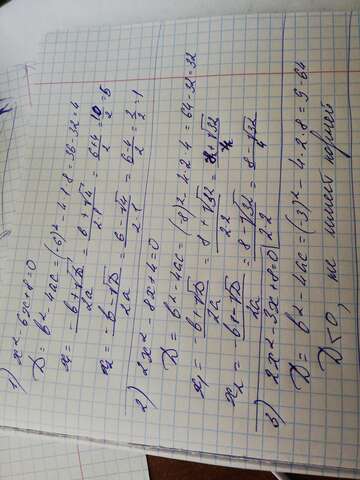 1) x² - 6x + 8 = 0
D = b² - 4ac = (-6)² - 4·1·8 = 36 - 32 = 4
x₁ = (-b + √D)/2a = (6 + √4)/(2·1) = (6 + 4)/2 = 10/2 = 5
x₂ = (-b - √D)/2a = (6 - √4)/(2·1) = (6 - 4)/2 = 2/2 = 1
2) 2x² - 8x + 4 = 0
D = b² - 4ac = (-8)² - 4·2·4 = 64 - 32 = 32
x₁ = (-b + √D)/2a = (8 + √32)/(2·2) = (8 + √32)/4
x₂ = (-b - √D)/2a = (8 - √32)/(2·2) = (8 - √32)/4
3) 2x² - 3x + 8 = 0
D = b² - 4ac = (-3)² - 4·2·8 = 9 - 64
D < 0, не имеет корней